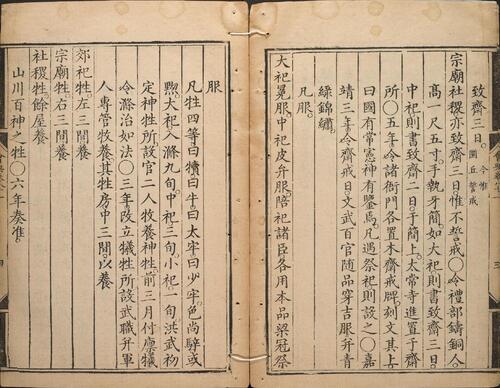 致齋三日。今惟圜丘誓戒
宗廟社稷亦致齋三日惟不誓戒〇令禮部鑄銅人
高一尺五寸。手執牙簡如大祀則書致齋三日。
中祀則書致齋二日。于簡上。太常寺進置于齋
所〇五年。令諸衙門各置木齋戒牌。刻文其上
曰國有常憲神有鑒焉凡遇祭祀則設之〇嘉
靖三年。令齋戒日。文武百官隨品穿吉服并青
綠錦繡。
凡服。
大祀冕服中祀皮弁服陪祀諸臣各用本品梁冠祭
服
凡牲四等曰犢。曰牛。曰太牢。曰少牢。色尚騂或
黝。大祀入滌九旬。中祀三旬。小祀一旬洪武初
定神牲所。設官二人牧養神牲。前三月付廪犧
令滌治如法〇三年。改立犧牲所設武職并軍
人專管牧養其牲房中三間。以養
郊祀牲。左三間養
宗廟牲右三間養
社稷牲。餘屋養
山川百神之牲〇六年奏准。